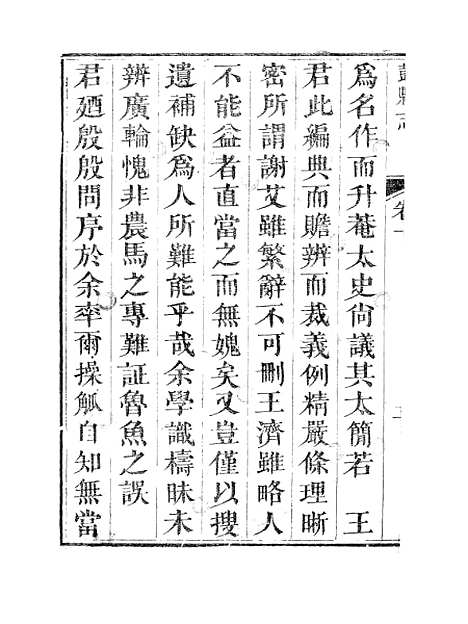 彭縣志
卷一
爲名作而升菴太史尙議其太簡若　王
君此編典而贍辨而裁義例精嚴條理晰
密所謂謝艾雖繁辭不可刪王濟雖略人
不能益者直當之而無媿矣又豈僅以搜
遺補缺爲人所難能乎哉余學識檮昧未
辨廣輪愧非農馬之專難証魯魚之誤
君廼殷殷問序於余率爾操觚自知無當